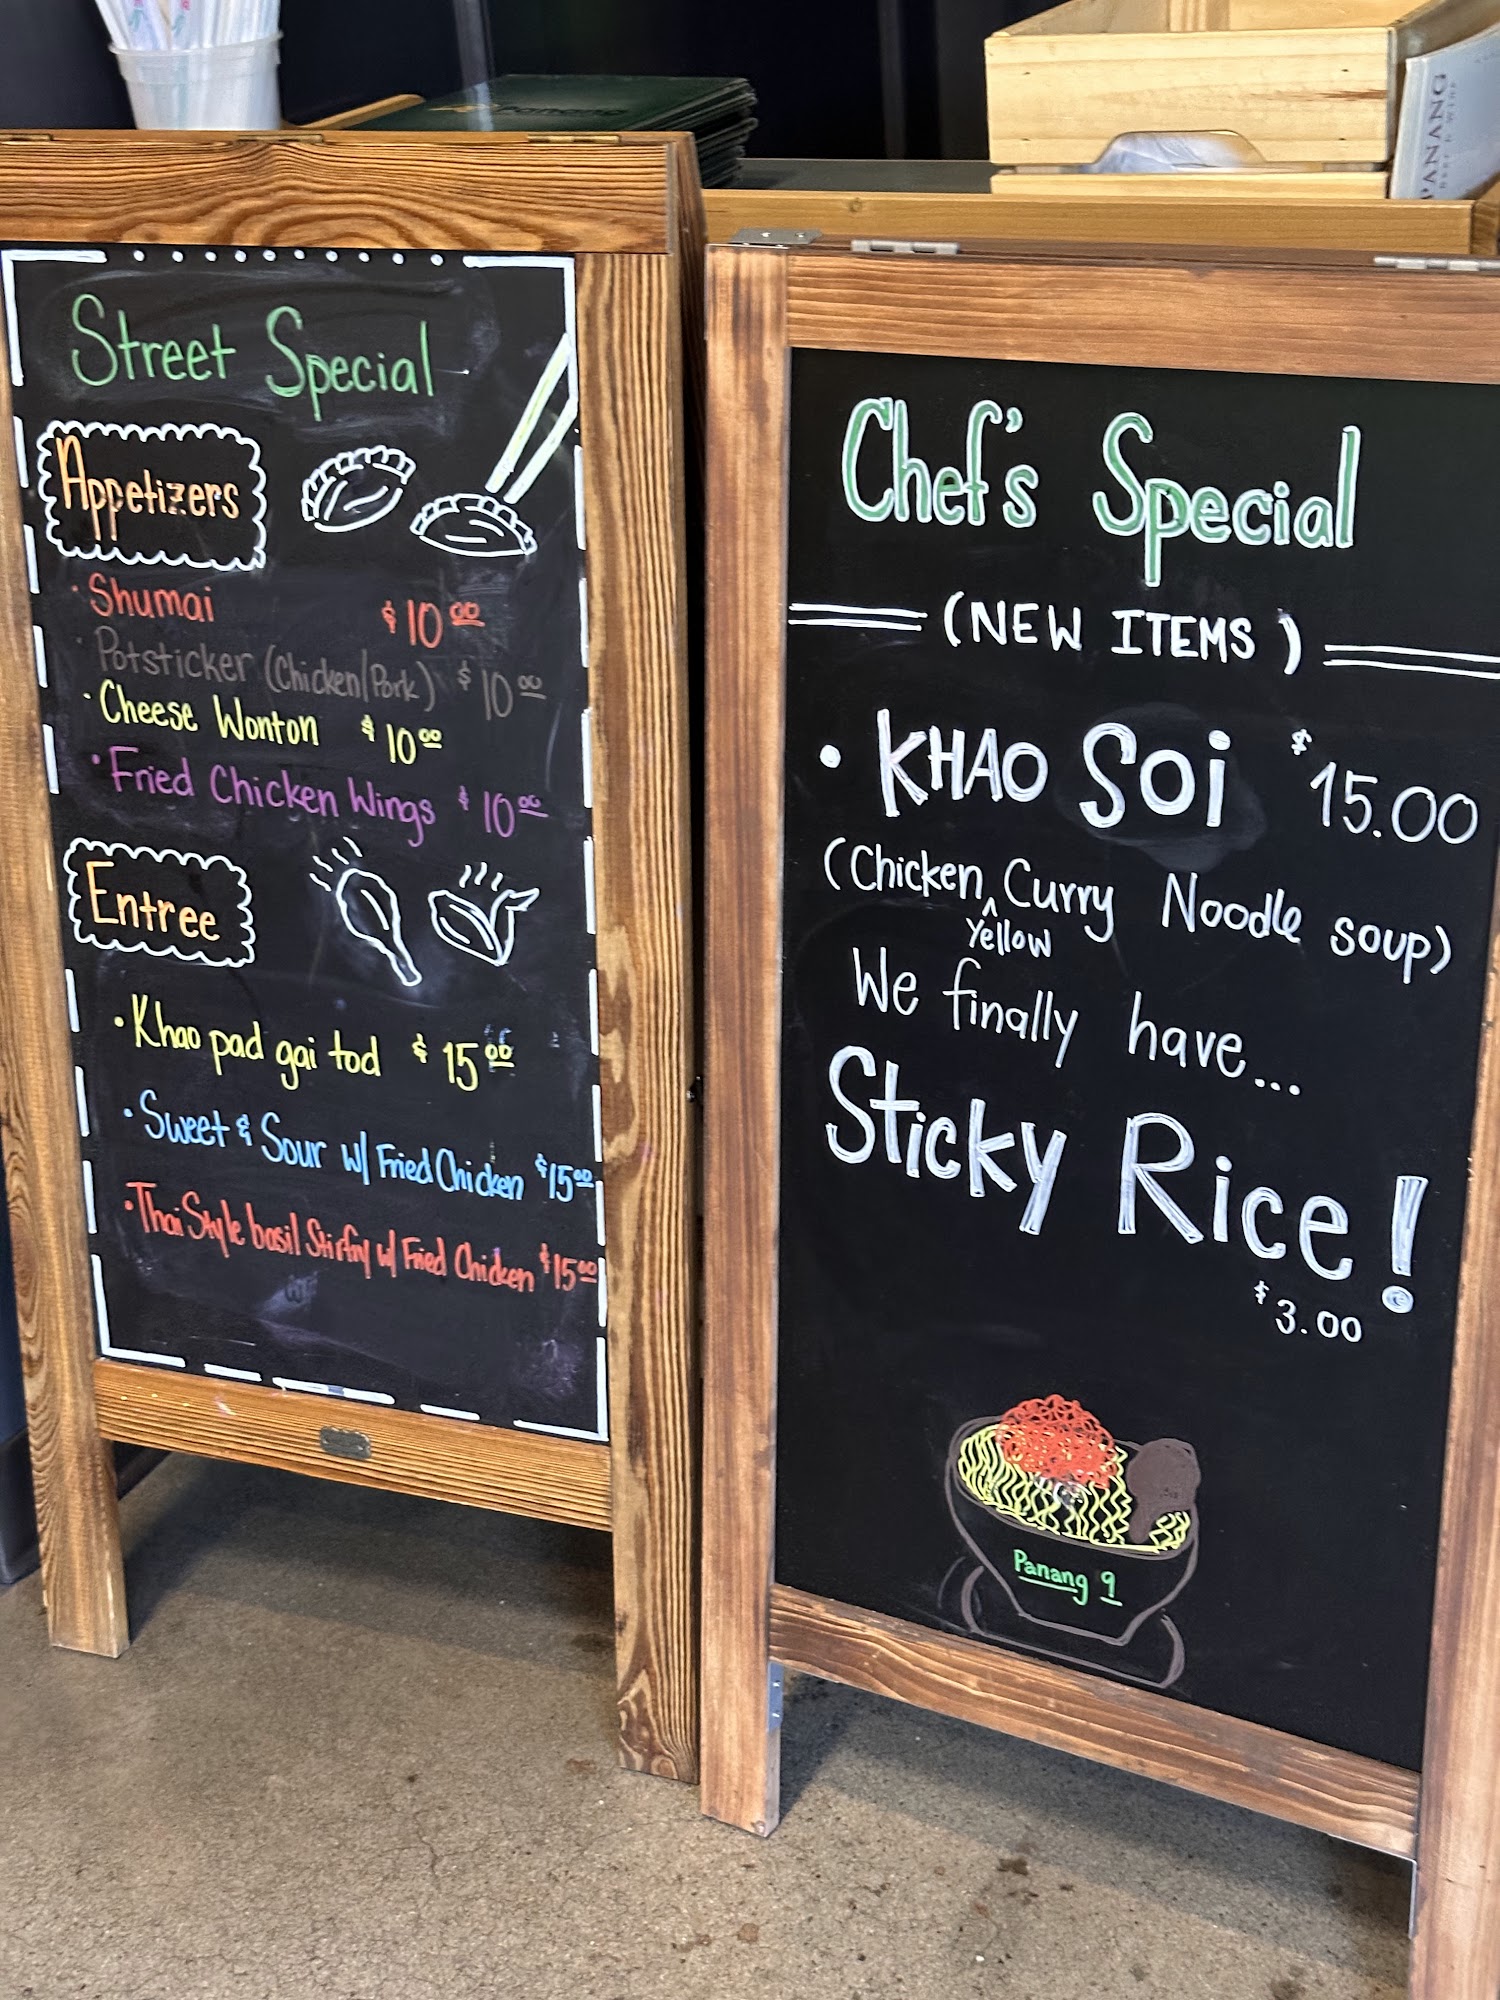 Street Special
Appetizers
· Shumai $10.00
· Potsticker (Chicken/Pork) $10.00
· Cheese Wonton $10.00
· Fried Chicken Wings $10.00
Entree
· Khao pad gai tod $15.00
· Sweet & Sour w/ Fried Chicken $15.00
· Thai Style basil Stirfry w/ Fried Chicken $15.00
Chef's Special
(NEW ITEMS)
· KHAO SOi $15.00
(Chicken Yellow Curry Noodle soup)
We finally have...
Sticky Rice!
$3.00
Panang 9
PANANG